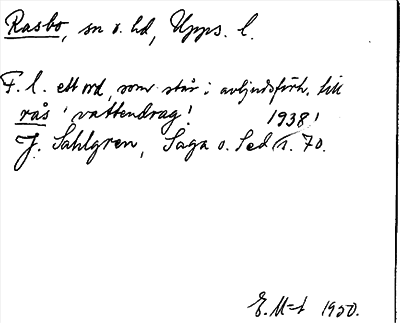 Rasbo, sn o. hd, Upps. l.
F. l. ett ord, som står i avljudsförh. till
rås 'vattendrag'.
1938!
J. Sahlgren, Saga o. Sed s. 70.
E. M-t 1950.